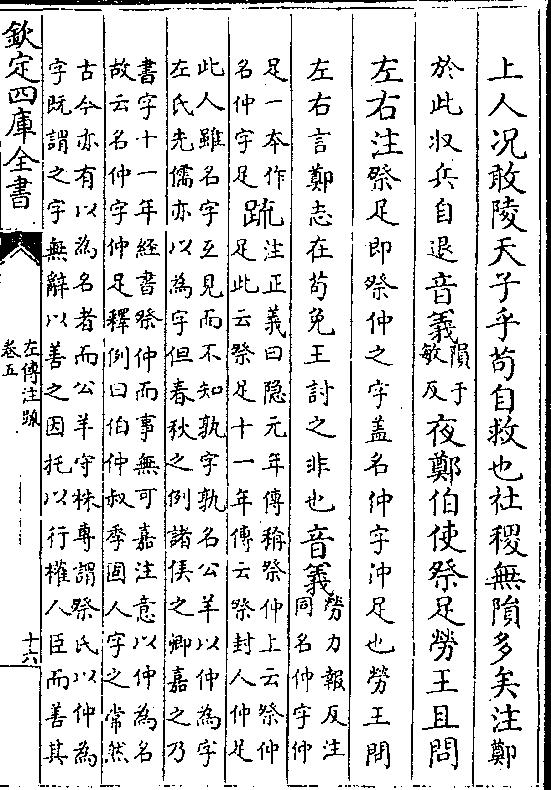 上人况敢陵天子乎苟自救也社稷無隕多矣注鄭
於此收兵自退音義隕于
敏反夜鄭伯使祭足勞王且問
左右注祭足即祭仲之字盖名仲字沖足也勞王問
左右言鄭志在苟免王討之非也音義勞力報反注
同名仲字仲
足一本作
名仲字足疏注正義曰隐元年傳稱祭仲上云祭仲
足此云祭足十一年傳云祭封人仲足
此人雖名字互見而不知孰字孰名公羊以仲為字
左氏先儒亦以為字但春秋之例諸侯之卿嘉之乃
書字十一年經書祭仲而事無可嘉注意以仲為名
故云名仲字仲足釋例曰伯仲叔季固人字之常然
古今亦有以為名者而公羊守株專謂祭氏以仲為
字既謂之字無辭以善之因托以行權人臣而善其
欽定四庫全書
左傳注疏
卷五
十六